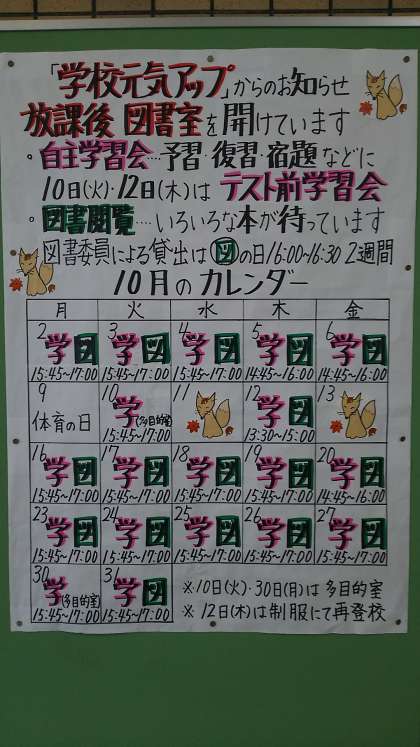 「学校元気アップ」からのお知らせ
放課後 図書室を開けています
・自主学習会…予習・復習・宿題などに
10日(火)・12日(木)は テスト前学習会
・図書閲覧…いろいろな本が待っています
図書委員による貸出は図の日16:00~16:30 2週間
10月のカレンダー
月 火 水 木 金
2 3 4 5 6
学図 学図 学図 学図 学図
15:45~17:00 15:45~17:00 15:45~17:00 14:45~16:00 14:45~16:00
9 10 11 12 13
体育の日 学(多目的室) 学図
15:45~17:00 13:30~15:00
16 17 18 19 20
学図 学図 学図 学図 学図
15:45~17:00 15:45~17:00 15:45~17:00 15:45~17:00 14:45~16:00
23 24 25 26 27
学図 学図 学図 学図 学図
15:45~17:00 15:45~17:00 15:45~17:00 15:45~17:00 15:45~17:00
30 31
学(多目的室) 学図
15:45~17:00 15:45~17:00
※10日(火)・30日(月)は 多目的室
※12日(木)は制服にて再登校